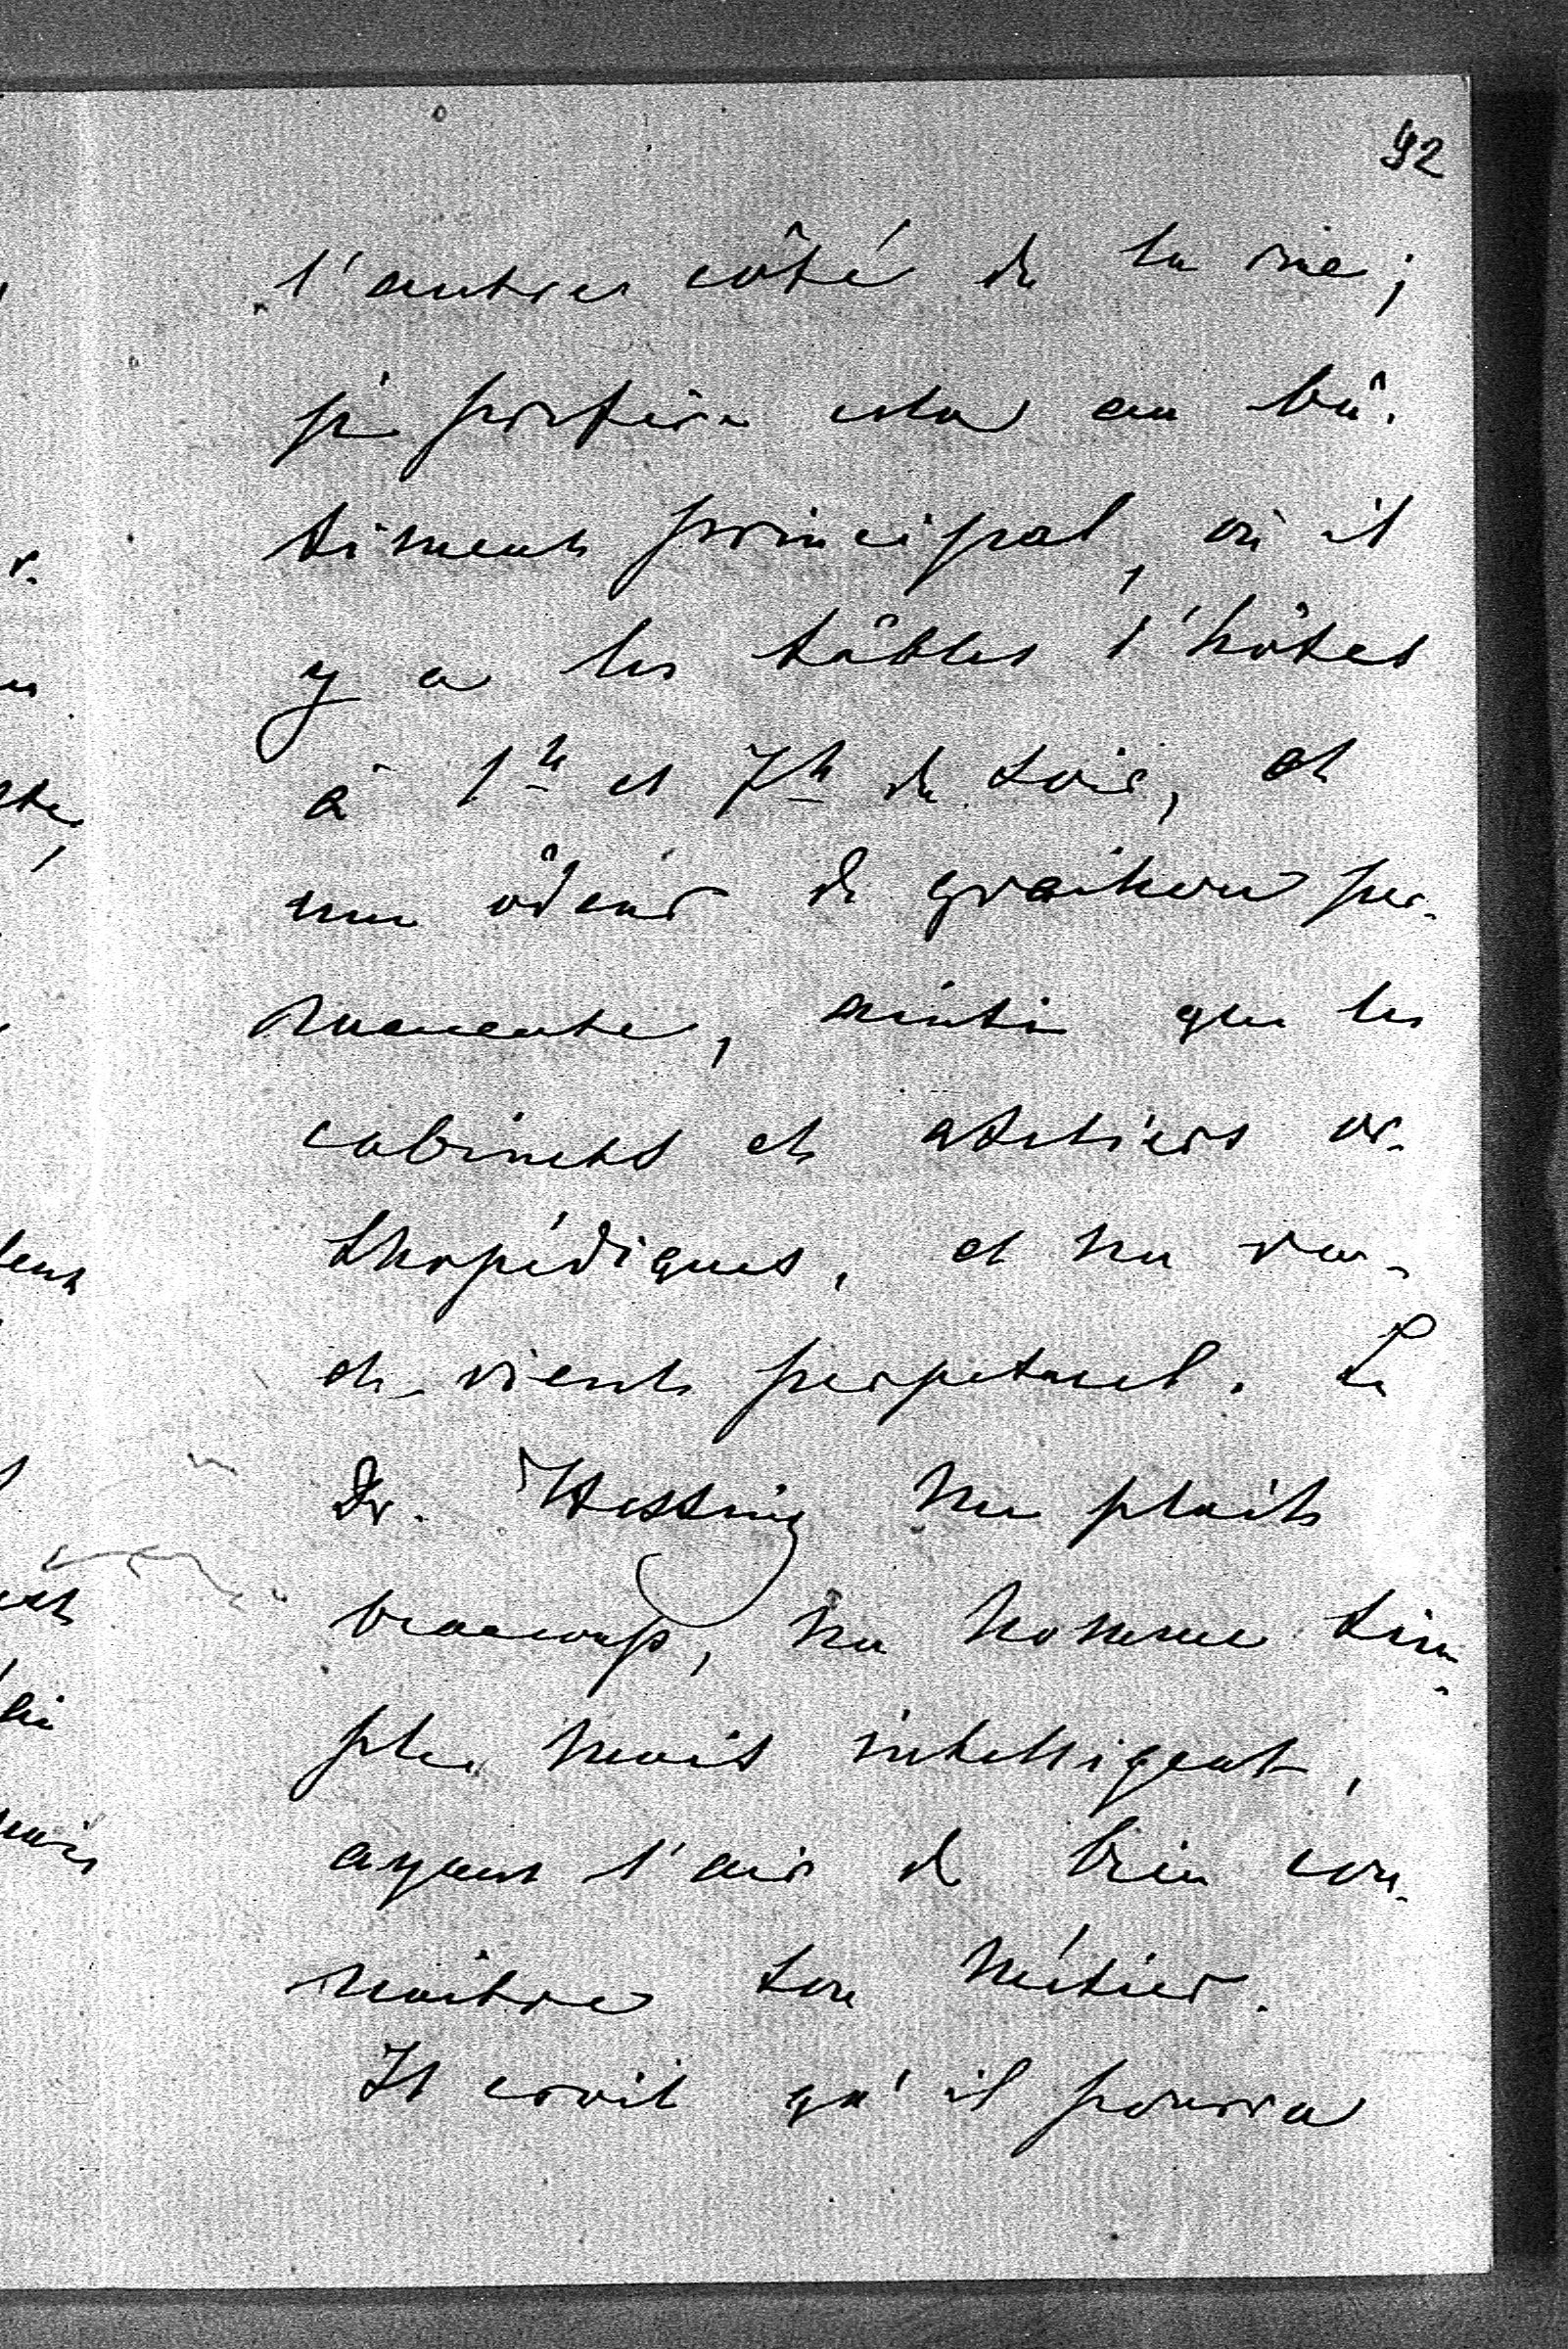 92
l'autre côté de la rue;
je préfère cela au bâ-
timent principal, où il
y a les tâbles d'hôtes
à 1h et 7h du soir, et
une ôdeur de graillon per-
manente, ainsi que les
cabinets et ateliers or-
thopédiques, et un va-
et-vient perpetuel. Le
Dr. Hessing me plait
beaucoup, un homme sim-
ple mais intelligent,
ayant l'air de bien con-
naître son métier.
Il croit qu'il pourra